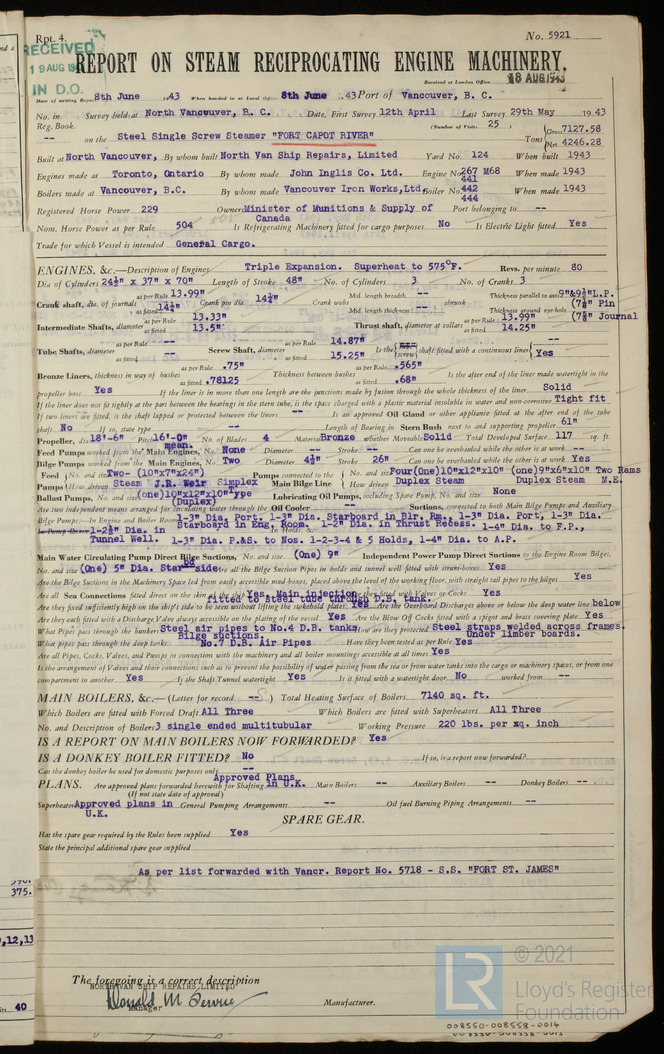 Rpt. 4.
No. 5921
RECEIVED
19 AUG 194
IN D.O.
REPORT ON STEAM RECIPROCATING ENGINE MACHINERY.
Received at London Office 18 AUG 1943
Date of writing Report 8th June 1943 When handed in at Local Office 8th June 1943 Port of Vancouver, B. C.
No. in Survey held at North Vancouver, B. C. Date, First Survey 12th April Last Survey 29th May 1943
Reg. Book. (Number of Visits 25 )
-- on the Steel Single Screw Steamer "FORT CAPOT RIVER" Tons Gross 7127.58 Net 4246.28
Built at North Vancouver, By whom built North Van Ship Repairs, Limited Yard No. 124 When built 1943
Engines made at Toronto, Ontario By whom made John Inglis Co. Ltd. Engine No. 267 M68 When made 1943
441
Boilers made at Vancouver, B.C. By whom made Vancouver Iron Works, Ltd. Boiler No. 442 When made 1943
444
Registered Horse Power 229 Owners Minister of Munitions & Supply of Canada Port belonging to --
Nom. Horse Power as per Rule 504 Is Refrigerating Machinery fitted for cargo purposes No Is Electric Light fitted Yes
Trade for which Vessel is intended General Cargo.
ENGINES, &c.—Description of Engines Triple Expansion. Superheat to 575°F. Revs. per minute 80
Dia of Cylinders 24½" x 37" x 70" Length of Stroke 48" No. of Cylinders 3 No. of Cranks 3
Crank shaft, dia. of journals as per Rule 13.99" as fitted 14¼" Crank pin dia. 14¼" Crank webs Mid. length breadth -- Mid. length thickness -- shrunk Thickness parallel to axis 9"&9½"I.P. Thickness around eye-hole (7⅞" Pin (7⅞" Journal
Intermediate Shafts, diameter as per Rule 13.33" as fitted 13.5" Thrust shaft, diameter at collars as per Rule 13.99" as fitted 14.25"
Tube Shafts, diameter as per Rule -- as fitted -- Screw Shaft, diameter as per Rule 14.87" as fitted 15.25" Is the screw shaft fitted with a continuous liner -- Yes
Bronze Liners, thickness in way of bushes as per Rule .75" as fitted .78125 Thickness between bushes as per Rule .565" as fitted .68" Is the after end of the liner made watertight in the
propeller boss Yes If the liner is in more than one length are the junctions made by fusion through the whole thickness of the liner Solid
If the liner does not fit tightly at the part between the bearings in the stern tube, is the space charged with a plastic material insoluble in water and non-corrosive Tight fit
If two liners are fitted, is the shaft lapped or protected between the liners -- Is an approved Oil Gland or other appliance fitted at the after end of the tube
shaft No If so, state type -- Length of Bearing in Stern Bush next to and supporting propeller 61"
Propeller, dia 18'-6" Pitch 16'-0" mean. No. of Blades 4 Material Bronze whether Moveable Solid Total Developed Surface 117 sq. ft.
Feed Pumps worked from the Main Engines, No. None Diameter -- Stroke -- Can one be overhauled while the other is at work --
Bilge Pumps worked from the Main Engines, No. Two Diameter 4½" Stroke 26" Can one be overhauled while the other is at work Yes
Feed Pumps No. and size Two- (10"x7"x24") How driven Steam J.R. Weir Simplex Type Pumps connected to the Main Bilge Line No. and size Four(One)10"x12"x10" (one)9"x6"x10" Two Rams How driven Duplex Steam Duplex Steam M.E.
Ballast Pumps, No. and size (one)10"x12"x10" (Duplex) Lubricating Oil Pumps, including Spare Pump, No. and size None
Are two independent means arranged for circulating water through the Oil Cooler -- Suctions, connected to both Main Bilge Pumps and Auxiliary
Bilge Pumps:—In Engine and Boiler Room 1-3" Dia. Port, 1-3" Dia. Starboard in Blr. Rm. 1-3" Dia. Port, 1-3" Dia.
Starboard in Eng. Room. 1-2" Dia. in Thrust Recess. 1-4" Dia. to F.P.,
1-2½" Dia. in Tunnel Well. 1-3" Dia. P.&S. to Nos. 1-2-3-4 & 5 Holds, 1-4" Dia. to A.P.
Main Water Circulating Pump Direct Bilge Suctions, No. and size (One) 9" Independent Power Pump Direct Suctions to the Engine Room Bilges,
No. and size (One) 5" Dia. Starbd side Are all the Bilge Suction Pipes in holds and tunnel well fitted with strum-boxes Yes
Are the Bilge Suctions in the Machinery Space led from easily accessible mud-boxes, placed above the level of the working floor, with straight tail pipes to the bilges Yes
Are all Sea Connections fitted direct on the skin of the ship Yes, Main injection fitted to steel tube through D.B. tank. Are they fitted with Valves or Cocks Yes
Are they fixed sufficiently high on the ship's side to be seen without lifting the stokehold plates Yes Are the Overboard Discharges above or below the deep water line below
Are they each fitted with a Discharge Valve always accessible on the plating of the vessel Yes Are the Blow Off Cocks fitted with a spigot and brass covering plate Yes
What Pipes pass through the bunkers Steel air pipes to No.4 D.B. tanks How are they protected Steel straps welded across frames.
What pipes pass through the deep tanks Bilge suctions. No.7 D.B. Air Pipes Under limber boards. Have they been tested as per Rule Yes
Are all Pipes, Cocks, Valves, and Pumps in connection with the machinery and all boiler mountings accessible at all times Yes
Is the arrangement of Valves and their connections such as to prevent the possibility of water passing from the sea or from water tanks into the cargo or machinery spaces, or from one
compartment to another Yes Is the Shaft Tunnel watertight Yes Is it fitted with a watertight door No worked from --
MAIN BOILERS, &c.—(Letter for record -- ) Total Heating Surface of Boilers 7140 sq. ft.
Which Boilers are fitted with Forced Draft All Three Which Boilers are fitted with Superheaters All Three
No. and Description of Boilers 3 single ended multitubular Working Pressure 220 lbs. per xq. inch
IS A REPORT ON MAIN BOILERS NOW FORWARDED? Yes
IS A DONKEY BOILER FITTED? No If so, is a report now forwarded?
Can the donkey boiler be used for domestic purposes only --
PLANS. Are approved plans forwarded herewith for Shafting Approved Plans in U.K. Main Boilers -- Auxiliary Boilers -- Donkey Boilers --
(If not state date of approval)
Superheaters Approved plans in U.K. General Pumping Arrangements -- Oil fuel Burning Piping Arrangements --
SPARE GEAR.
Has the spare gear required by the Rules been supplied Yes
State the principal additional spare gear supplied
As per list forwarded with Vancr. Report No. 5718 - S.S. "FORT ST. JAMES"
375.
,12,13
40
The foregoing is a correct description
NORTH VAN SHIP REPAIRS LIMITED
Manager
Manufacturer.
LR
© 2021
Lloyd's Register
Foundation
008550-008558-0014